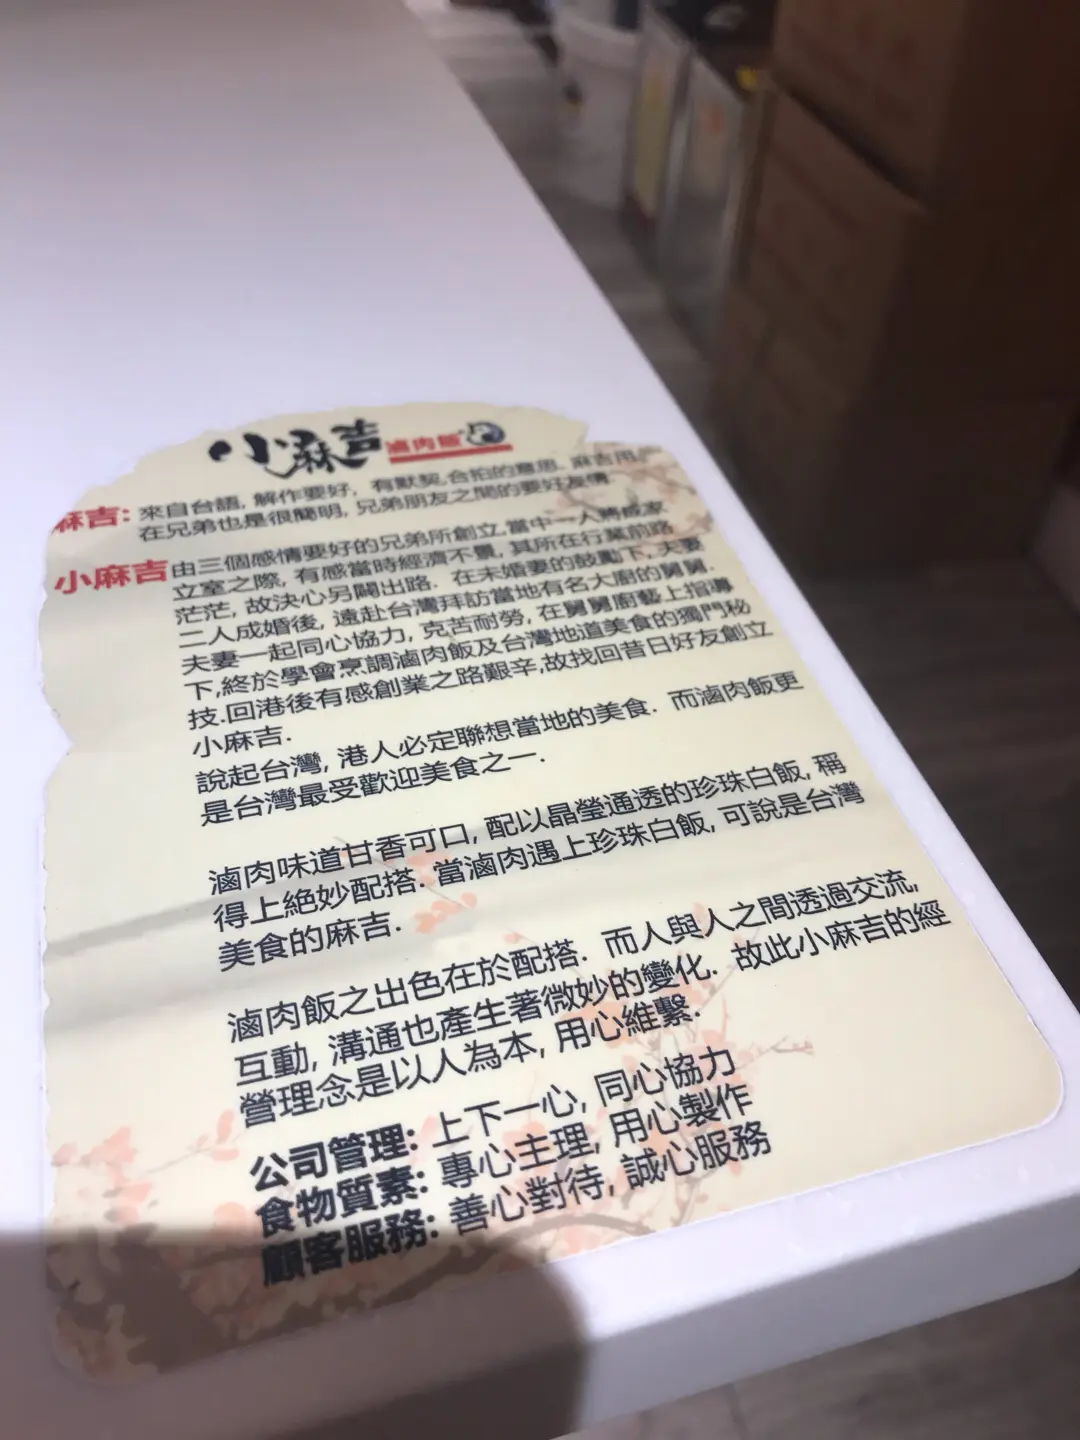 小麻吉 滷肉飯
麻吉: 來自台語, 解作要好, 有默契,合拍的意思. 麻吉用
在兄弟也是很簡明, 兄弟朋友之間的要好友情.
小麻吉由三個感情要好的兄弟所創立,當中一人將成家
立室之際, 有感當時經濟不景, 其所在行業前路
茫茫, 故決心另闢出路. 在未婚妻的鼓勵下, 夫妻
二人成婚後, 遠赴台灣拜訪當地有名大廚的舅舅.
夫妻一起同心協力, 克苦耐勞, 在舅舅廚藝上指導
下,終於學會烹調滷肉飯及台灣地道美食的獨門秘
技.回港後有感創業之路艱辛,故找回昔日好友創立
小麻吉.
說起台灣, 港人必定聯想當地的美食. 而滷肉飯更
是台灣最受歡迎美食之一.
滷肉味道甘香可口, 配以晶瑩通透的珍珠白飯, 稱
得上絕妙配搭. 當滷肉遇上珍珠白飯, 可說是台灣
美食的麻吉.
滷肉飯之出色在於配搭. 而人與人之間透過交流,
互動, 溝通也產生著微妙的變化. 故此小麻吉的經
營理念是以人為本, 用心維繫.
公司管理: 上下一心, 同心協力
食物質素: 專心主理, 用心製作
顧客服務: 善心對待, 誠心服務